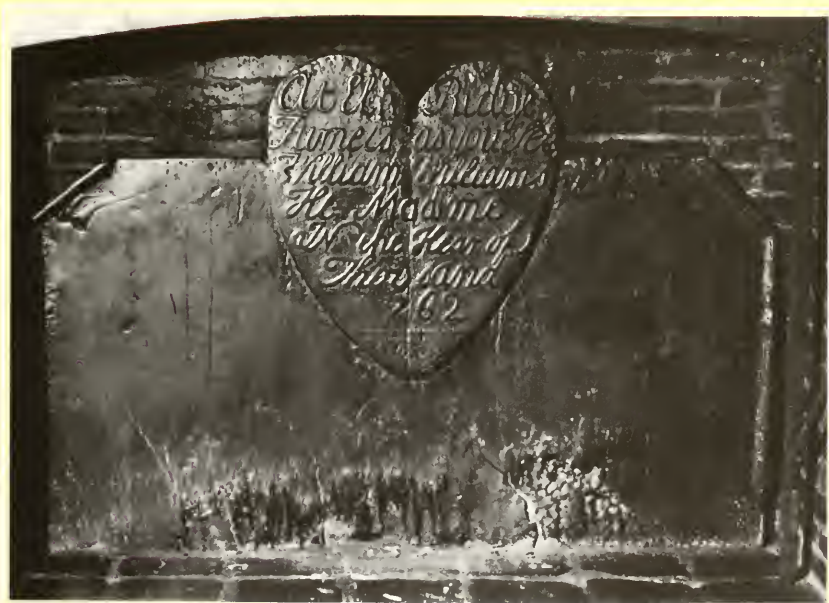 At the Ridg
Turneis asyousee
William Williams
He Mad me
Year of
Thousand
762